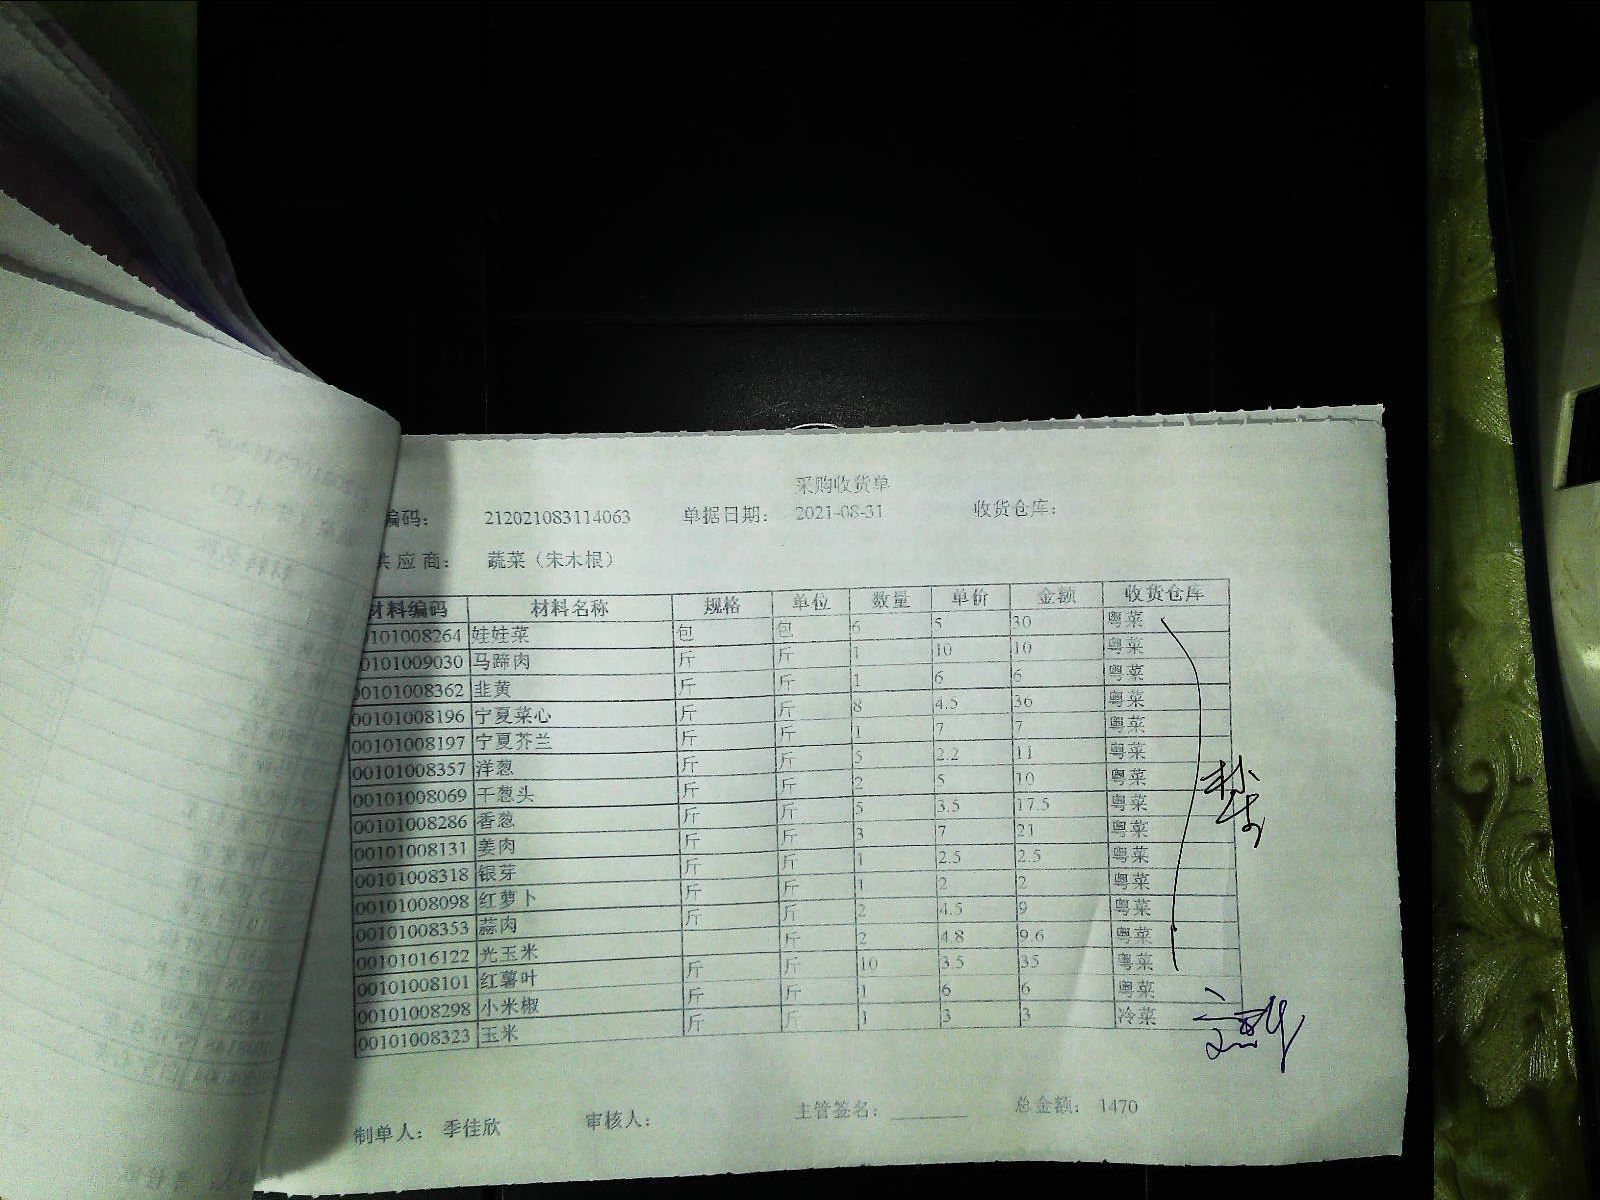 采购收货单
编码： 212021083114063 单据日期： 2021-08-31 收货仓库：
供应商： 蔬菜（宋木根）
材料编码 材料名称 规格 单位 数量 单价 金额 收货仓库
00101008264 娃娃菜 包 包 6 5 30 粤菜
00101009030 马蹄肉 斤 斤 1 10 10 粤菜
00101008362 韭黄 斤 斤 1 6 6 粤菜
00101008196 宁夏菜心 斤 斤 8 4.5 36 粤菜
00101008197 宁夏芥兰 斤 斤 1 7 7 粤菜
00101008357 洋葱 斤 斤 5 2.2 11 粤菜
00101008069 干葱头 斤 斤 2 5 10 粤菜
00101008286 香葱 斤 斤 5 3.5 17.5 粤菜
00101008131 姜肉 斤 斤 3 7 21 粤菜
00101008318 银芽 斤 斤 1 2.5 2.5 粤菜
00101008098 红萝卜 斤 斤 1 2 2 粤菜
00101008353 蒜肉 斤 斤 2 4.5 9 粤菜
00101016122 光玉米 斤 2 4.8 9.6 粤菜
00101008101 红薯叶 斤 斤 10 3.5 35 粤菜
00101008298 小米椒 斤 斤 1 6 6 粤菜
00101008323 玉米 斤 斤 1 3 3 冷菜
制单人： 季佳欣 审核人： 主管签名： 总金额： 1470